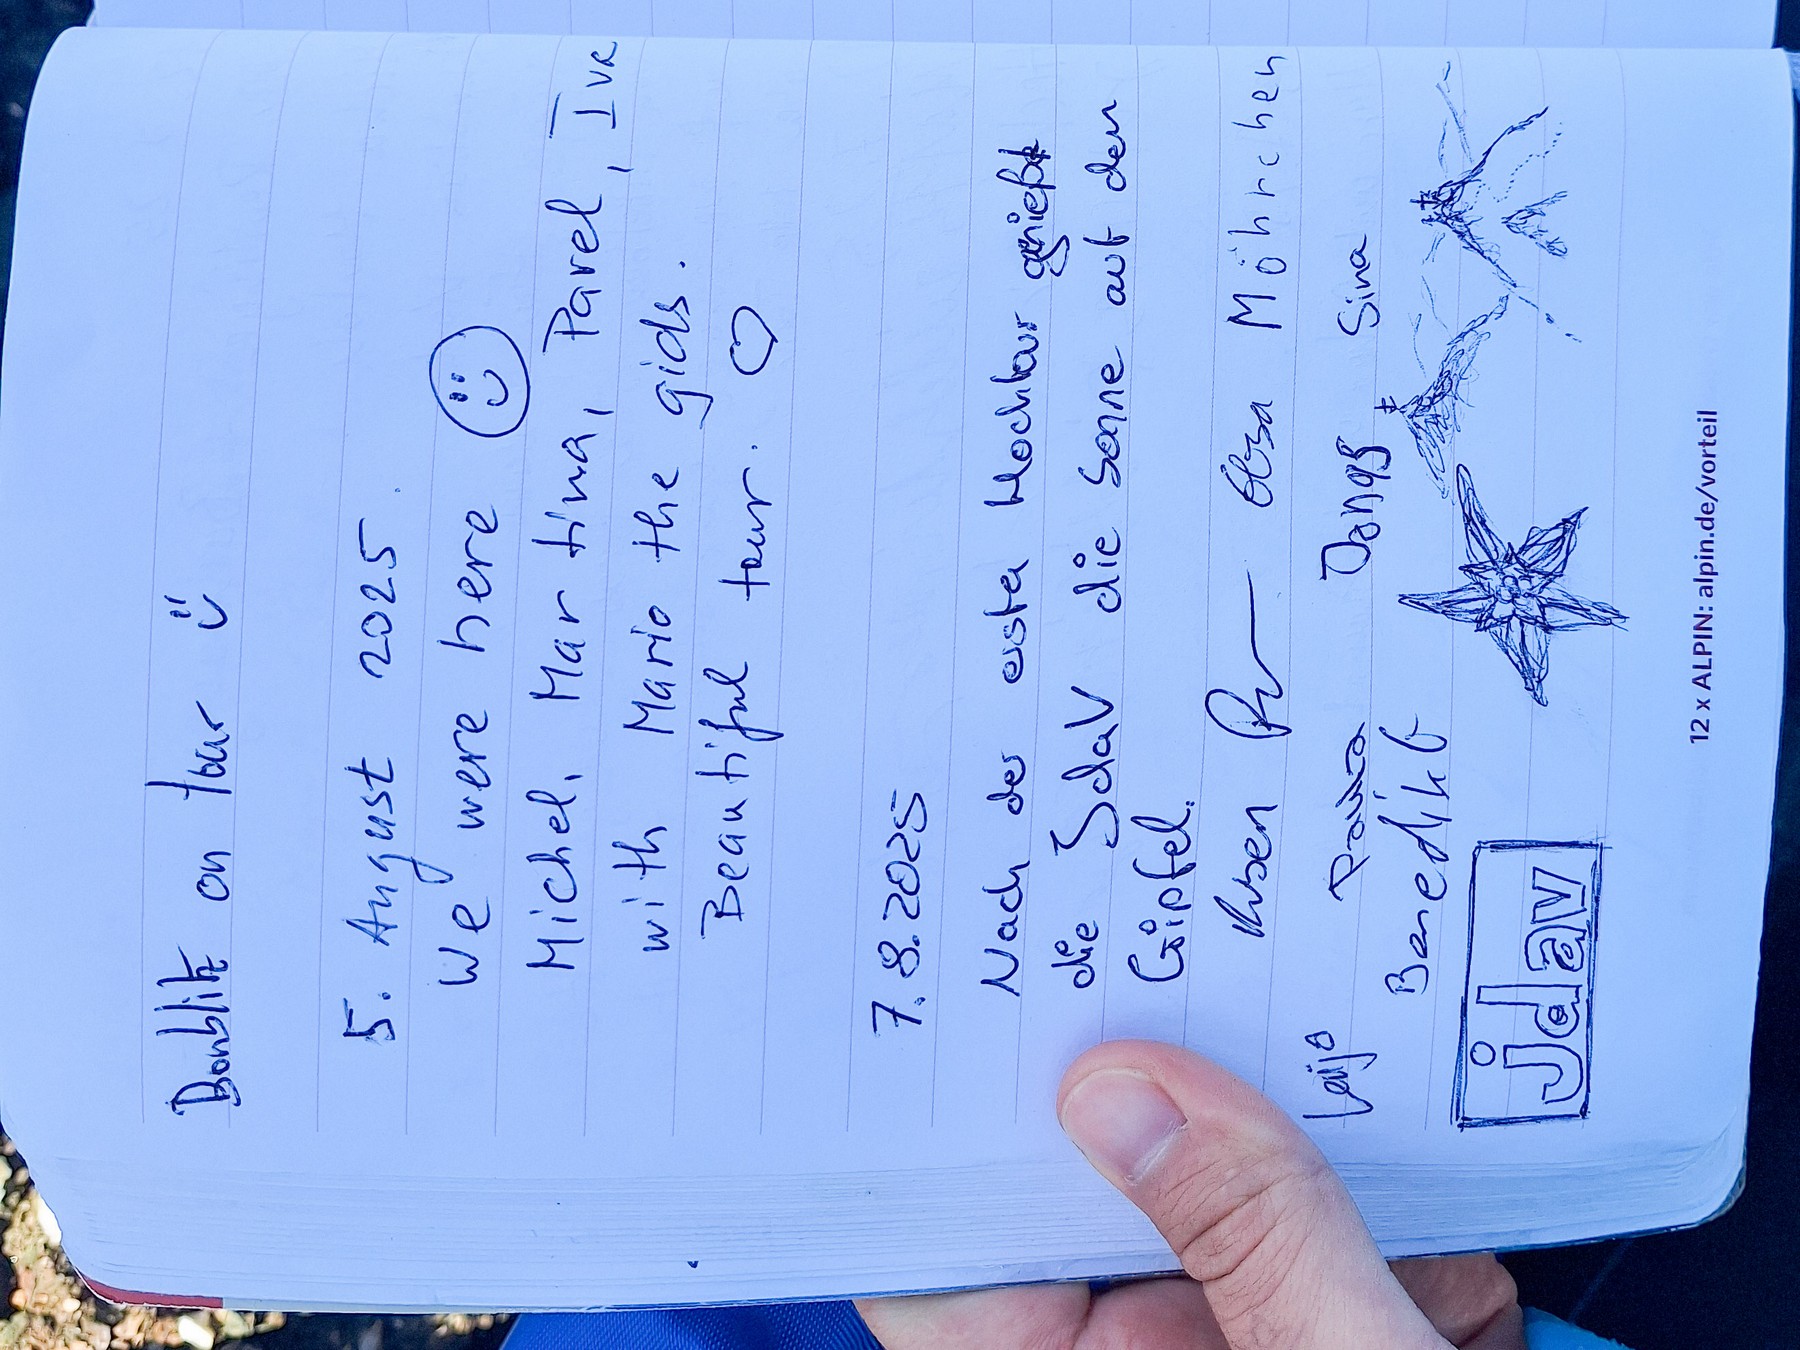 on tour
5. August 2025
We were here
Michel, Martina, Pavel, Iva
with Mario the gids.
Beautiful tour. ♡
7.8.2025
Nach der erste Hochtour genießt
die JdaV die Sonne auf dem
Gipfel.
Möhrchen
Sina
Benedikt
jdav
12 x ALPIN: alpin.de/vorteil